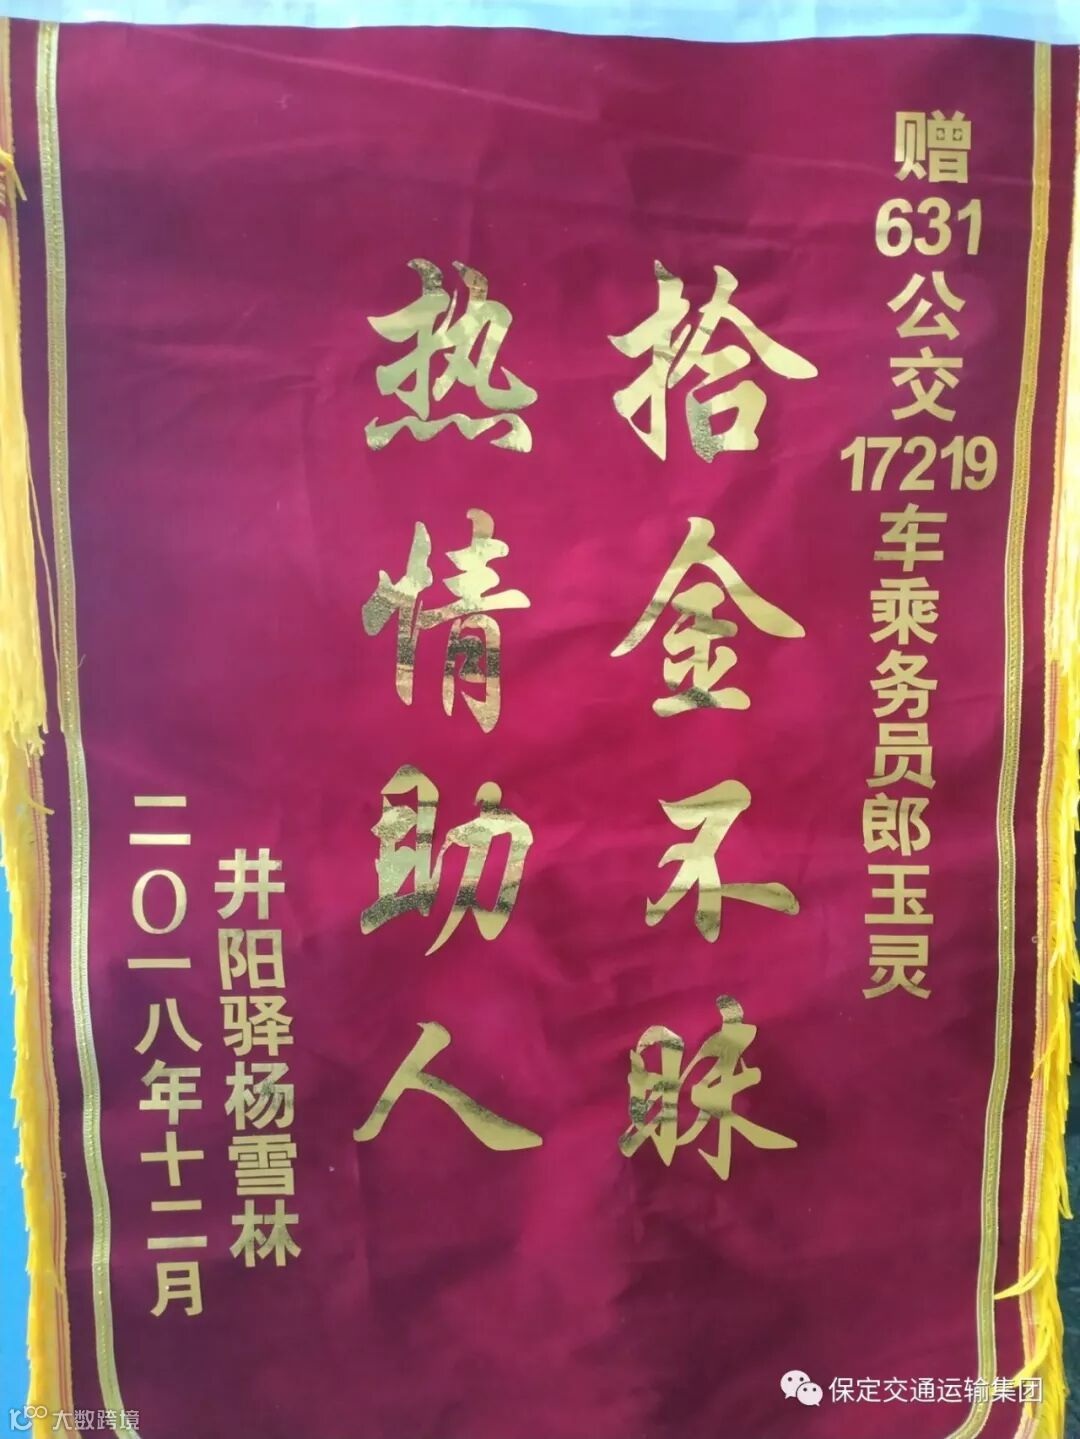 赠631公交17219车乘务员郎玉灵
拾金不昧
热情助人
井阳驿杨雪林
二〇一八年十二月
保定交通运输集团
大数跨境